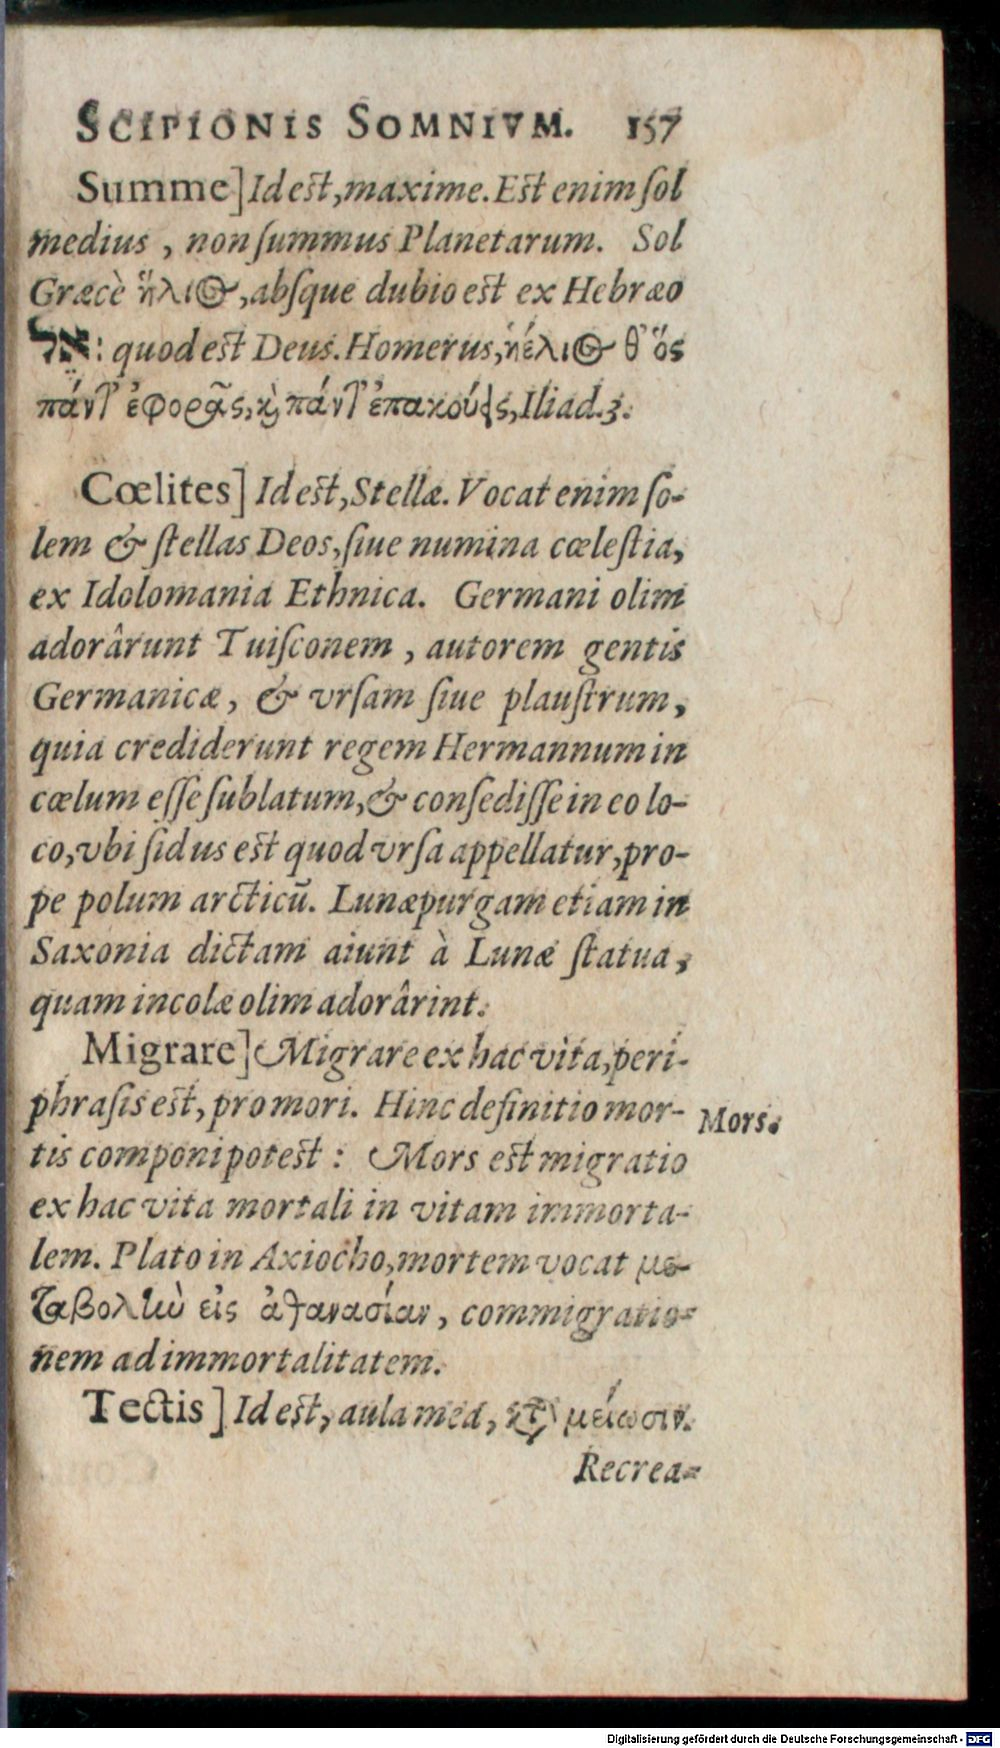 SCIPIONIS SOMNIVM. 157
Summe] Id est, maxime. Est enim ſol
medius, non ſummus Planetarum. Sol
Græcè ἥλιος, abſque dubio est ex Hebræo
אֵל: quod est Deus. Homerus, ἠέλιος θ' ὃς
πάντ' ἐφορᾷς, καὶ πάντ' ἐπακούεις, Iliad. 3.
Cœlites] Id est, Stellæ. Vocat enim ſo-
lem & ſtellas Deos, ſiue numina cœleſtia,
ex Idolomania Ethnica. Germani olim
adorârunt Tuiſconem, autorem gentis
Germanicæ, & vrſam ſiue plauſtrum,
quia crediderunt regem Hermannum in
cœlum eſſe ſublatum, & conſediſſe in eo lo-
co, vbi ſidus est quod vrſa appellatur, pro-
pe polum arcticū. Lunæpurgam etiam in
Saxonia dictam aiunt à Lunæ ſtatua,
quam incolæ olim adorârint.
Migrare] Migrare ex hac vita, peri-
phraſis est, pro mori. Hinc definitio mor-
Mors.
tis componi potest: Mors est migratio
ex hac vita mortali in vitam immorta-
lem. Plato in Axiocho, mortem vocat με-
ταβολὴν εἰς ἀθανασίαν, commigratio-
nem ad immortalitatem.
Tectis] Id est, aula mea, κατὰ μείωσιν.
Recrea-
Digitalisierung gefördert durch die Deutsche Forschungsgemeinschaft - DFG